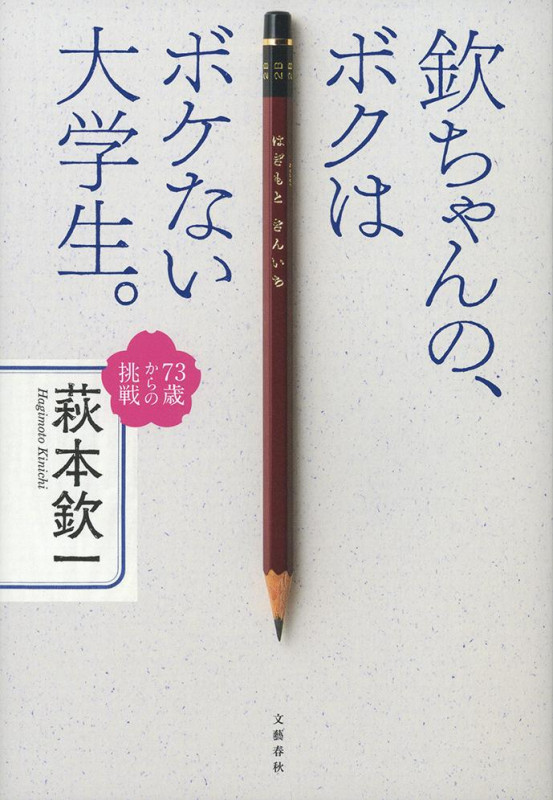 欽ちゃんの、
ボクは
ボケない
大学生。
73歳
からの
挑戦
萩本欽一
Hagimoto Kinichi
2B
はぎもと きんいち
文藝春秋